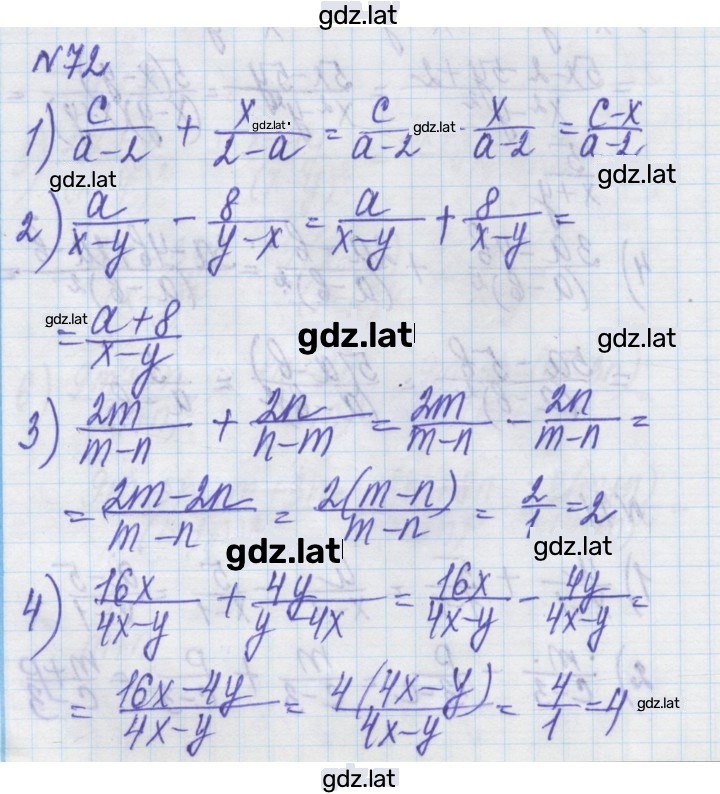 gdz.lat
N72
1) c/(a-2) + x/(2-a) = c/(a-2) - x/(a-2) = (c-x)/(a-2)
gdz.lat gdz.lat
gdz.lat gdz.lat
2) a/(x-y) - 8/(y-x) = a/(x-y) + 8/(x-y) =
gdz.lat gdz.lat gdz.lat
= (a+8)/(x-y)
3) 2m/(m-n) + 2n/(n-m) = 2m/(m-n) - 2n/(m-n) =
= (2m-2n)/(m-n) = 2(m-n)/(m-n) = 2/1 = 2
gdz.lat gdz.lat
4) 16x/(4x-y) + 4y/(y-4x) = 16x/(4x-y) - 4y/(4x-y) =
= (16x-4y)/(4x-y) = 4(4x-y)/(4x-y) = 4/1 = 4 gdz.lat
gdz.lat